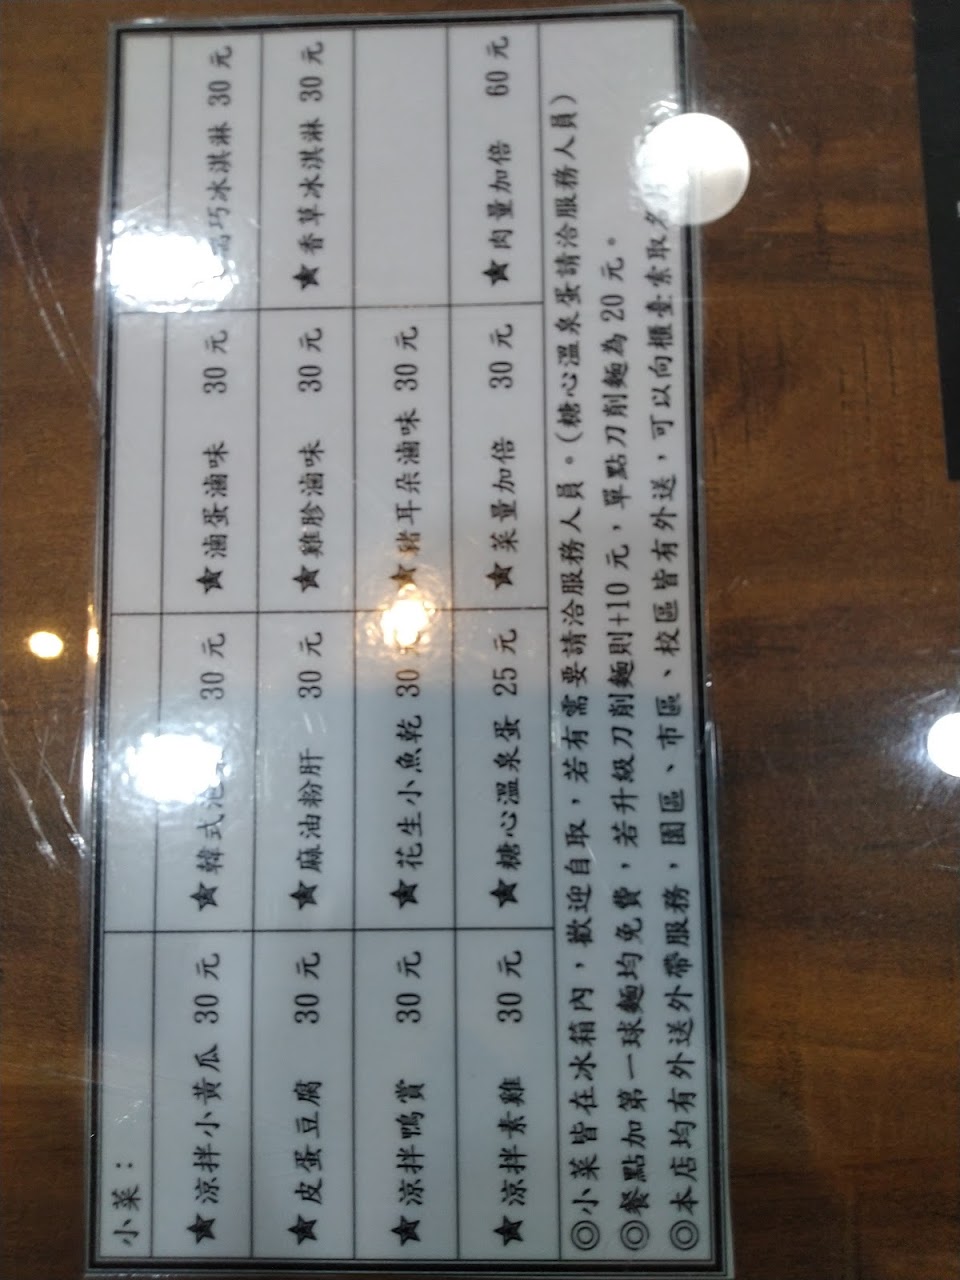 小菜：
★涼拌小黃瓜 30 元 ★韓式泡 30 元 ★滷蛋滷味 30 元 巧冰淇淋 30 元
★皮蛋豆腐 30 元 ★麻油粉肝 30 元 ★雞胗滷味 30 元 ★香草冰淇淋 30 元
★涼拌鴨賞 30 元 ★花生小魚乾 30 元 ★豬耳朵滷味 30 元
★涼拌素雞 30 元 ★糖心溫泉蛋 25 元 ★菜量加倍 30 元 ★肉量加倍 60 元
◎小菜皆在冰箱內，歡迎自取，若有需要請洽服務人員。（糖心溫泉蛋請洽服務人員）
◎餐點加第一球麵均免費，若升級刀削麵則+10 元，單點刀削麵為 20 元。
◎本店均有外送外帶服務，園區、市區、校區皆有外送，可以向櫃臺索取名